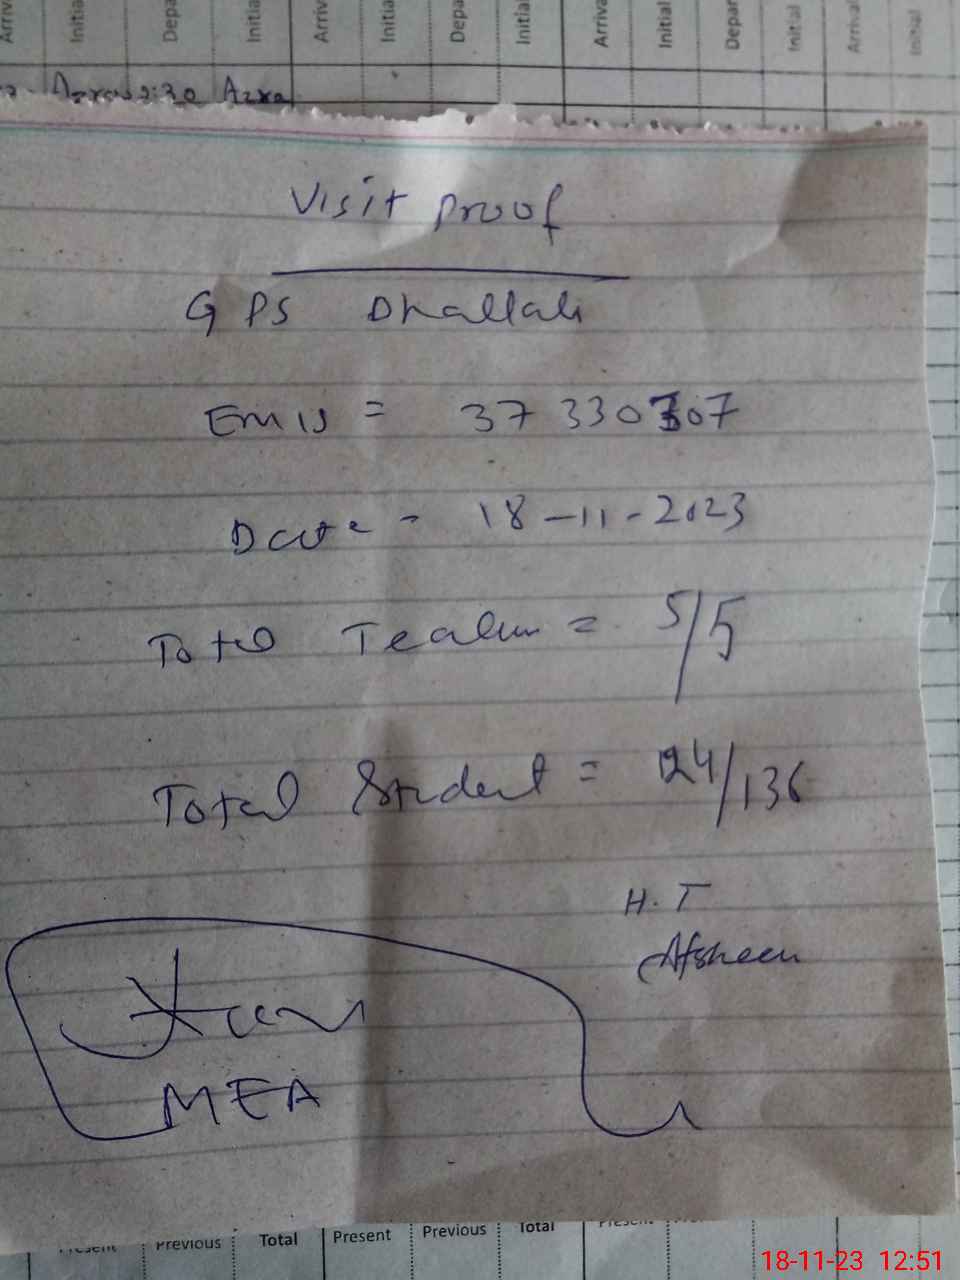 Arriv Initial Depa Initia Arriva Initial Depa Initial Arriva Initial Depar Initial Arrival Initial
2:30 Azra
Visit Proof
GPS Dhallah
Emis = 37330307
Date - 18-11-2023
Total = 5/5
Total Student = 124/136
H.T
Afsheen
MEA
Present Previous Total Present Previous Total Present
18-11-23 12:51